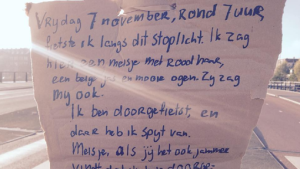 Vrydag 7 november, rond 7 uur,
fietste ik langs dit stoplicht. Ik zag
hier een meisje met rood haar,
een beige jas en mooie ogen. Zy zag
my ook.
Ik ben doorgefietst, en
daar heb ik spyt van.
Meisje, als jy het ook jammer
vindt dat ik ben doorge-